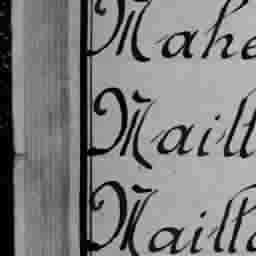 Mahe
Maill
Mailla